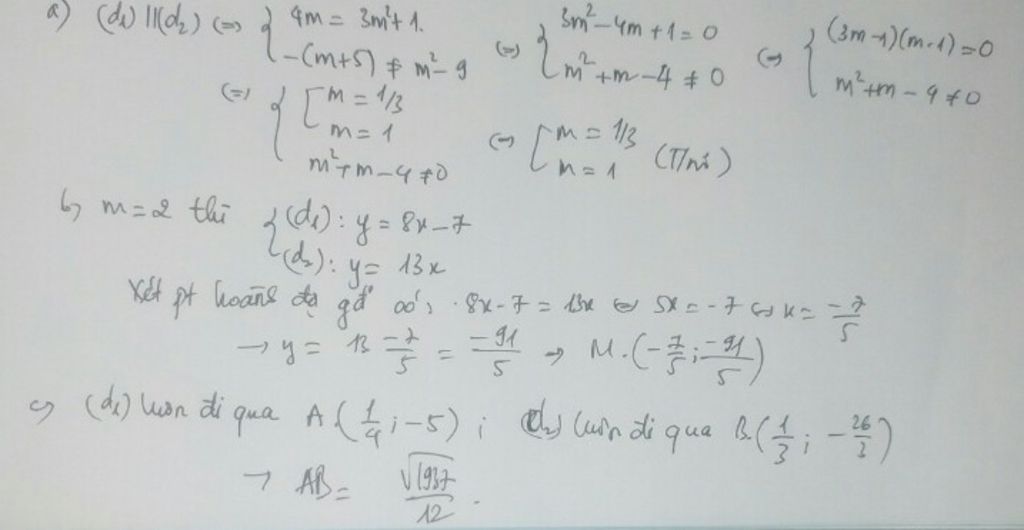 a) (d₁) || (d₂) (=) { 4m = 3m²+1. -(m+5) ≠ m²-9 (=) { 3m²-4m+1=0 m²+m-4≠0 (=) { (3m-1)(m-1)=0 m²+m-4≠0
(=) { [ m=1/3 m=1 m²+m-4≠0 (=) [ m=1/3 m=1 (T/m)
b, m=2 thì { (d₁): y = 8x-7 (d₂): y = 13x
Xét pt hoành độ gđ có: 8x-7 = 13x (=) 5x = -7 (=) x = -7/5
→ y = 13 -7/5 = -91/5 → M.(-7/5; -91/5)
c, (d₁) luôn đi qua A(1/4; -5); (d₂) luôn đi qua B.(1/3; -26/3)
→ AB = √1937/12.